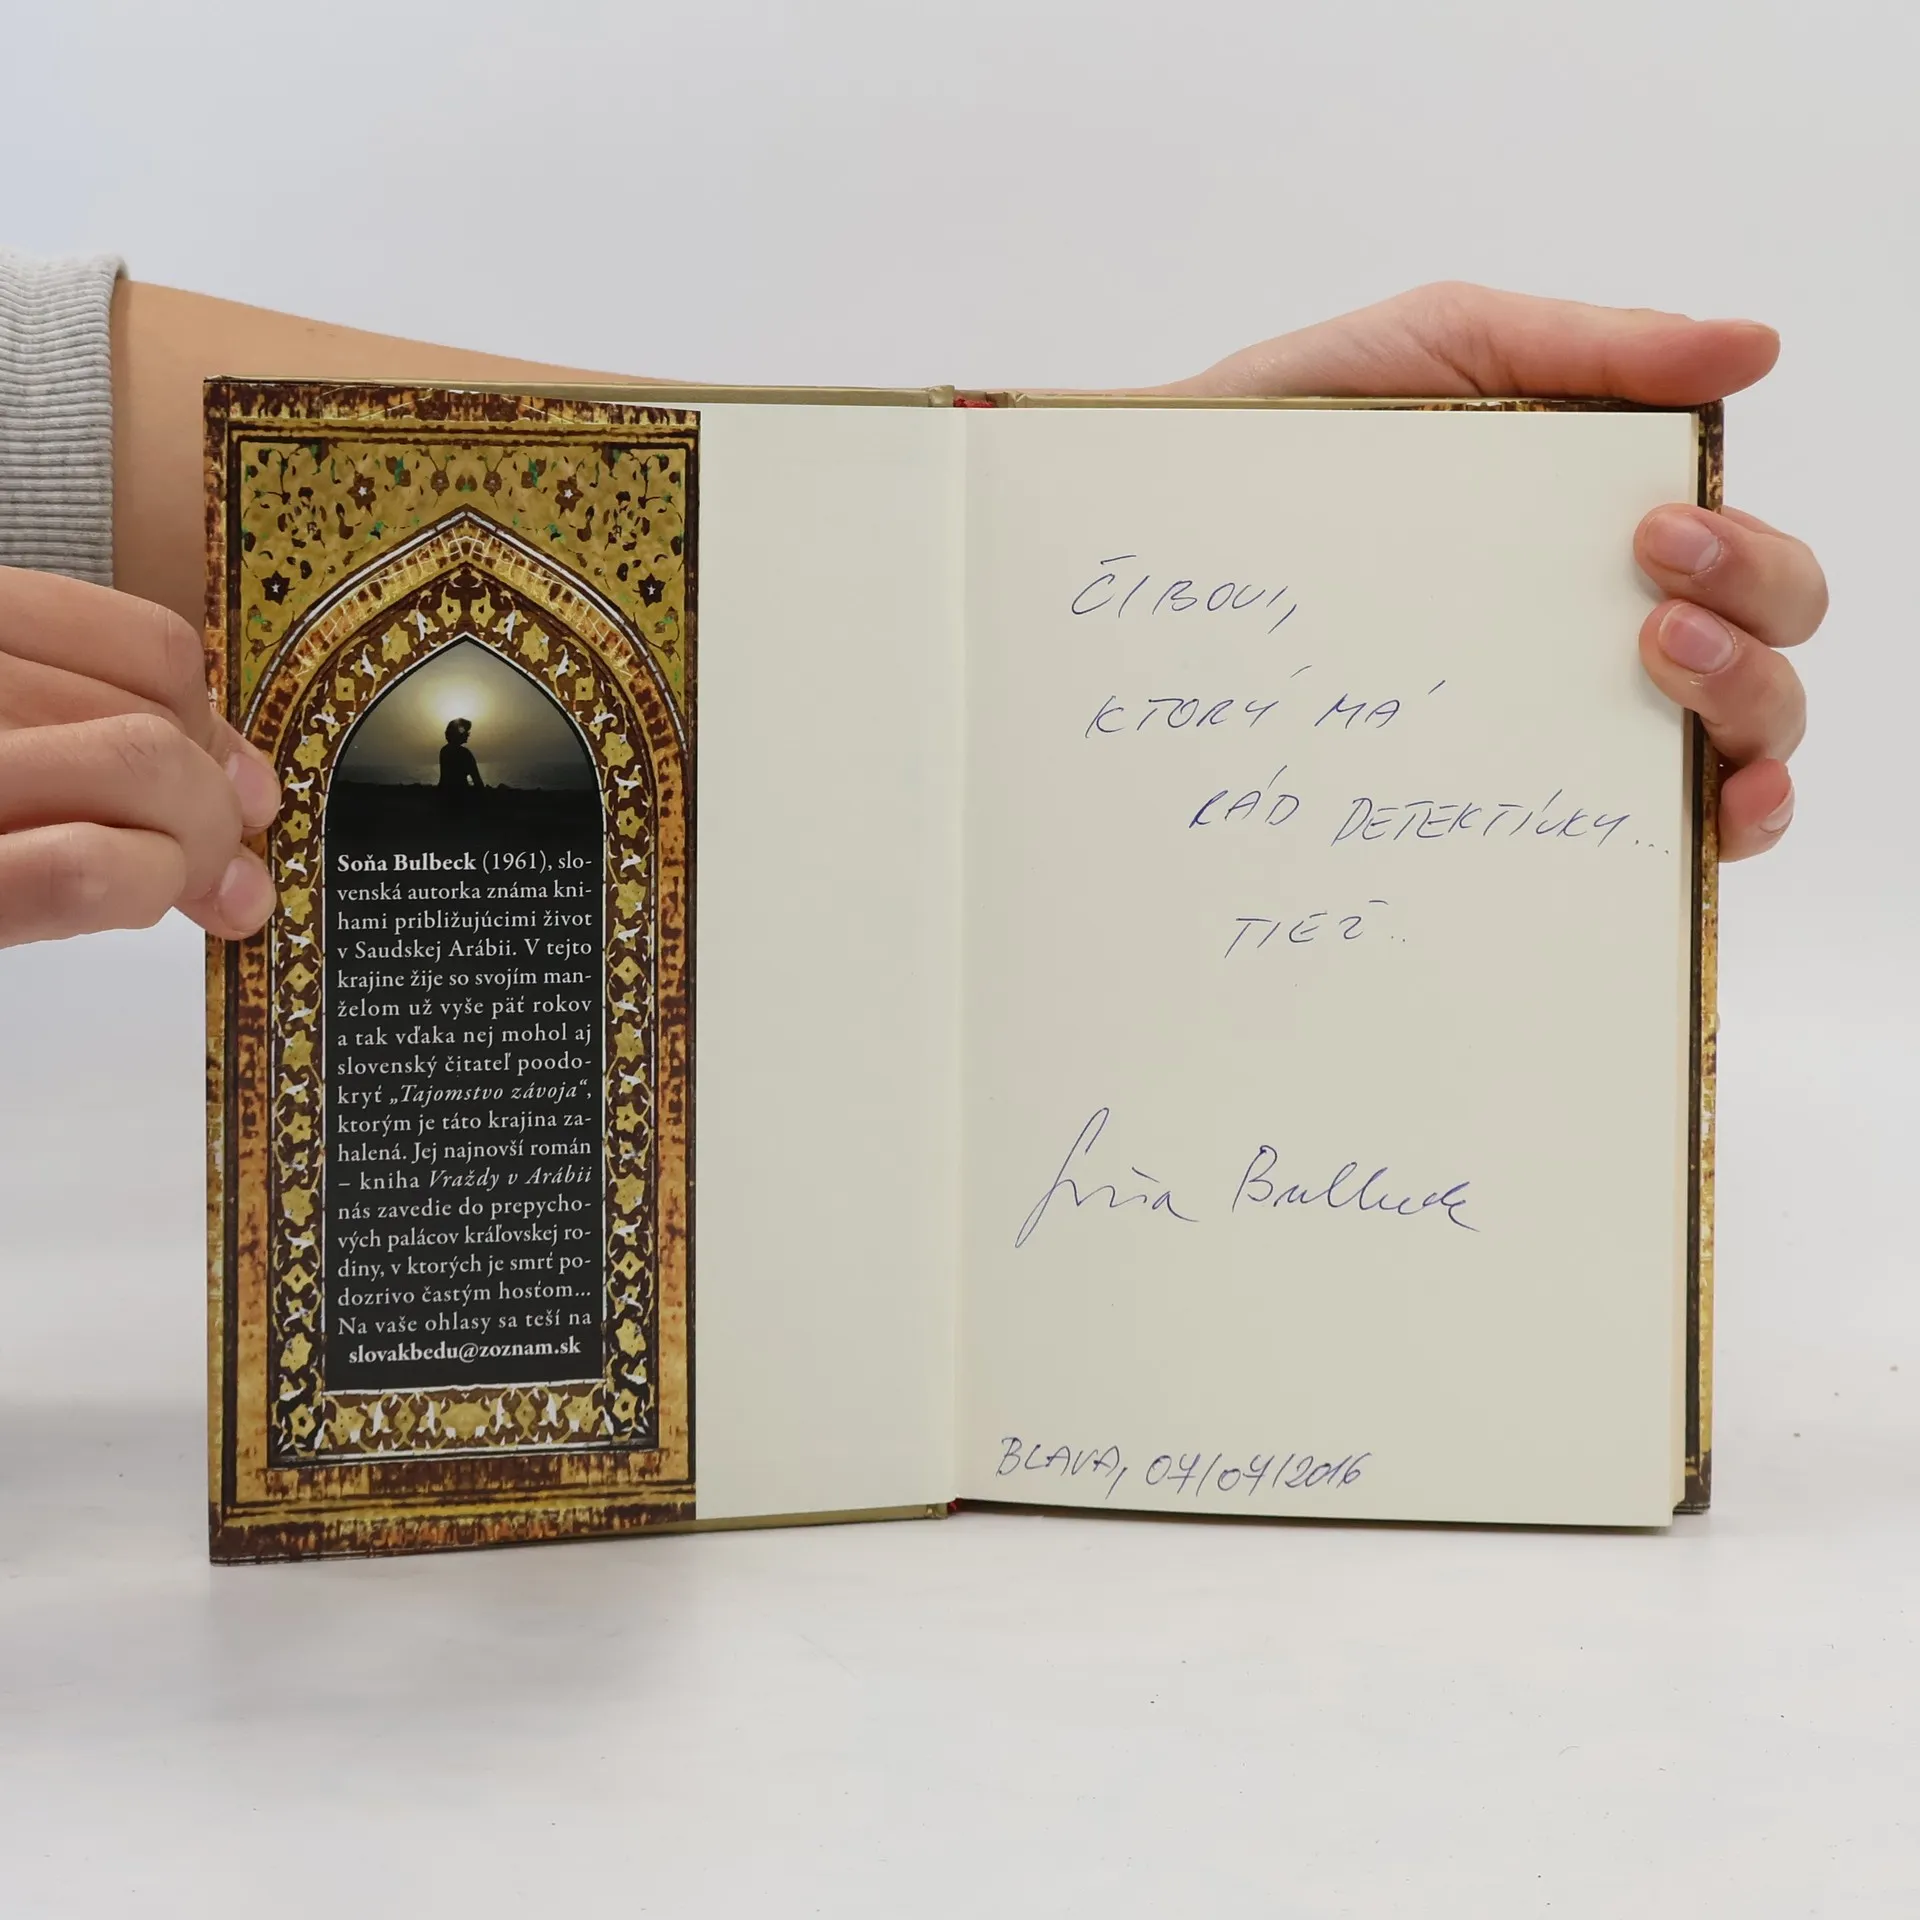 Soňa Bulbeck (1961), slo-
venská autorka známa kni-
hami približujúcimi život
v Saudskej Arábii. V tejto
krajine žije so svojím man-
želom už vyše päť rokov
a tak vďaka nej mohol aj
slovenský čitateľ poodo-
kryť „Tajomstvo závoja“,
ktorým je táto krajina za-
halená. Jej najnovší román
– kniha Vraždy v Arábii
nás zavedie do prepycho-
vých palácov kráľovskej ro-
diny, v ktorých je smrť po-
dozrivo častým hosťom...
Na vaše ohlasy sa teší na
slovakbedu@zoznam.sk
ČIBOVI,
KTORÝ MÁ
RÁD DETEKTÍVKY...
TIEŽ..
Soňa Bulbeck
BLAVA, 07/07/2016